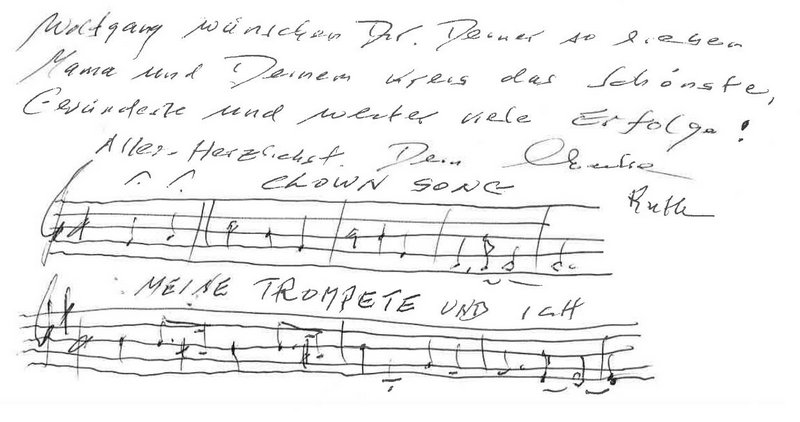 Wolfgang wünschen Dir, Deiner so lieben
Mama und Deinem Kreis das Schönste,
Gesündeste und weiter viele Erfolge!
Aller-Herzlichst. Dein
CLOWN SONG
Ruth
MEINE TROMPETE UND ICH